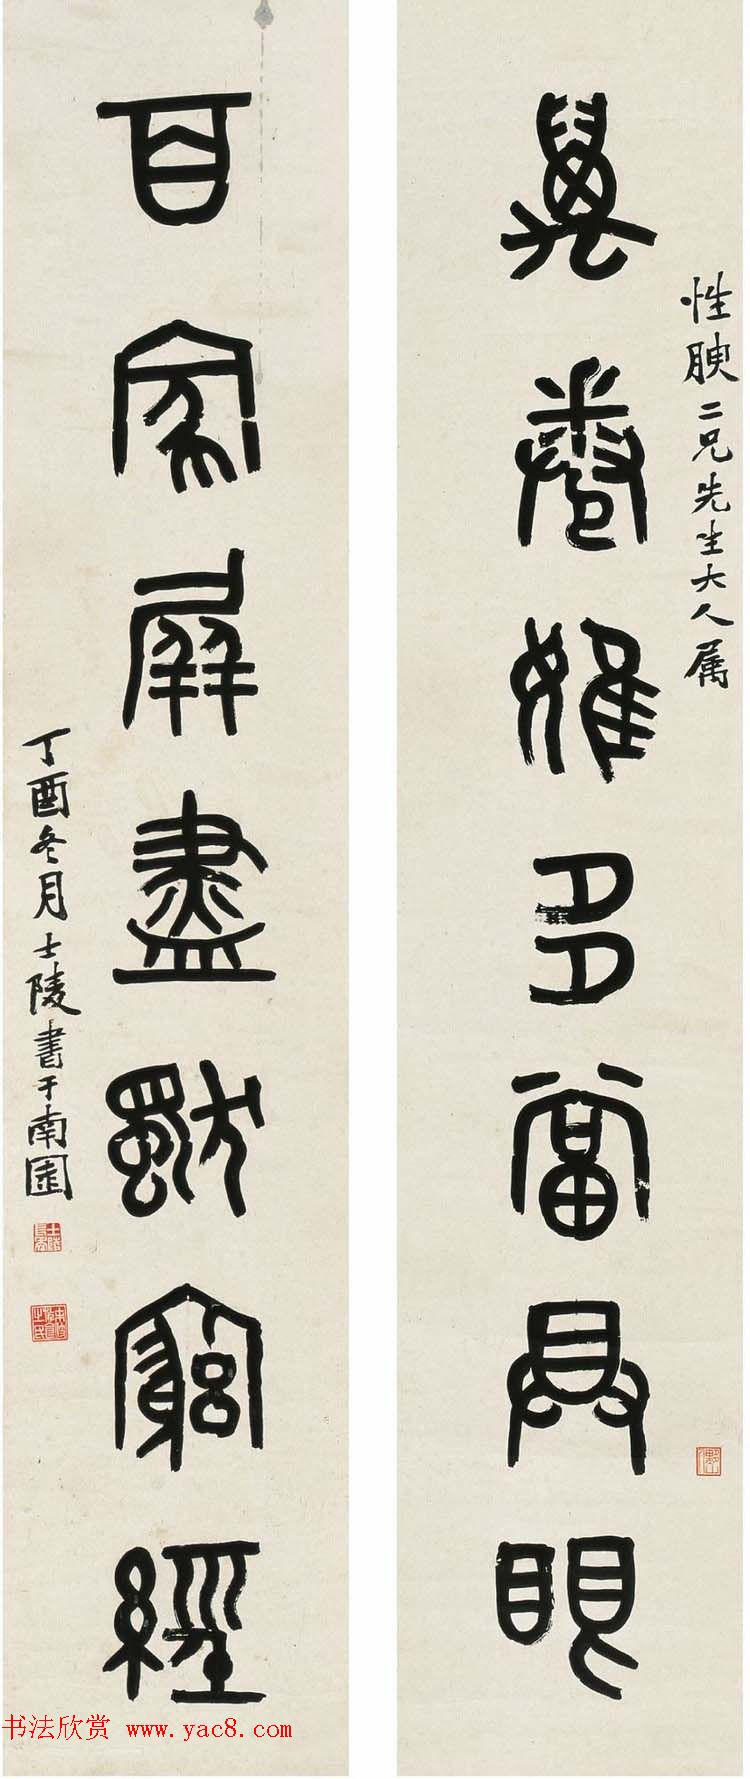 性腴二兄先生大人属
萬卷雖多當具眼
百家屏盡獨窮經
丁酉冬月士陵書于南園
书法欣赏 www.yac8.com